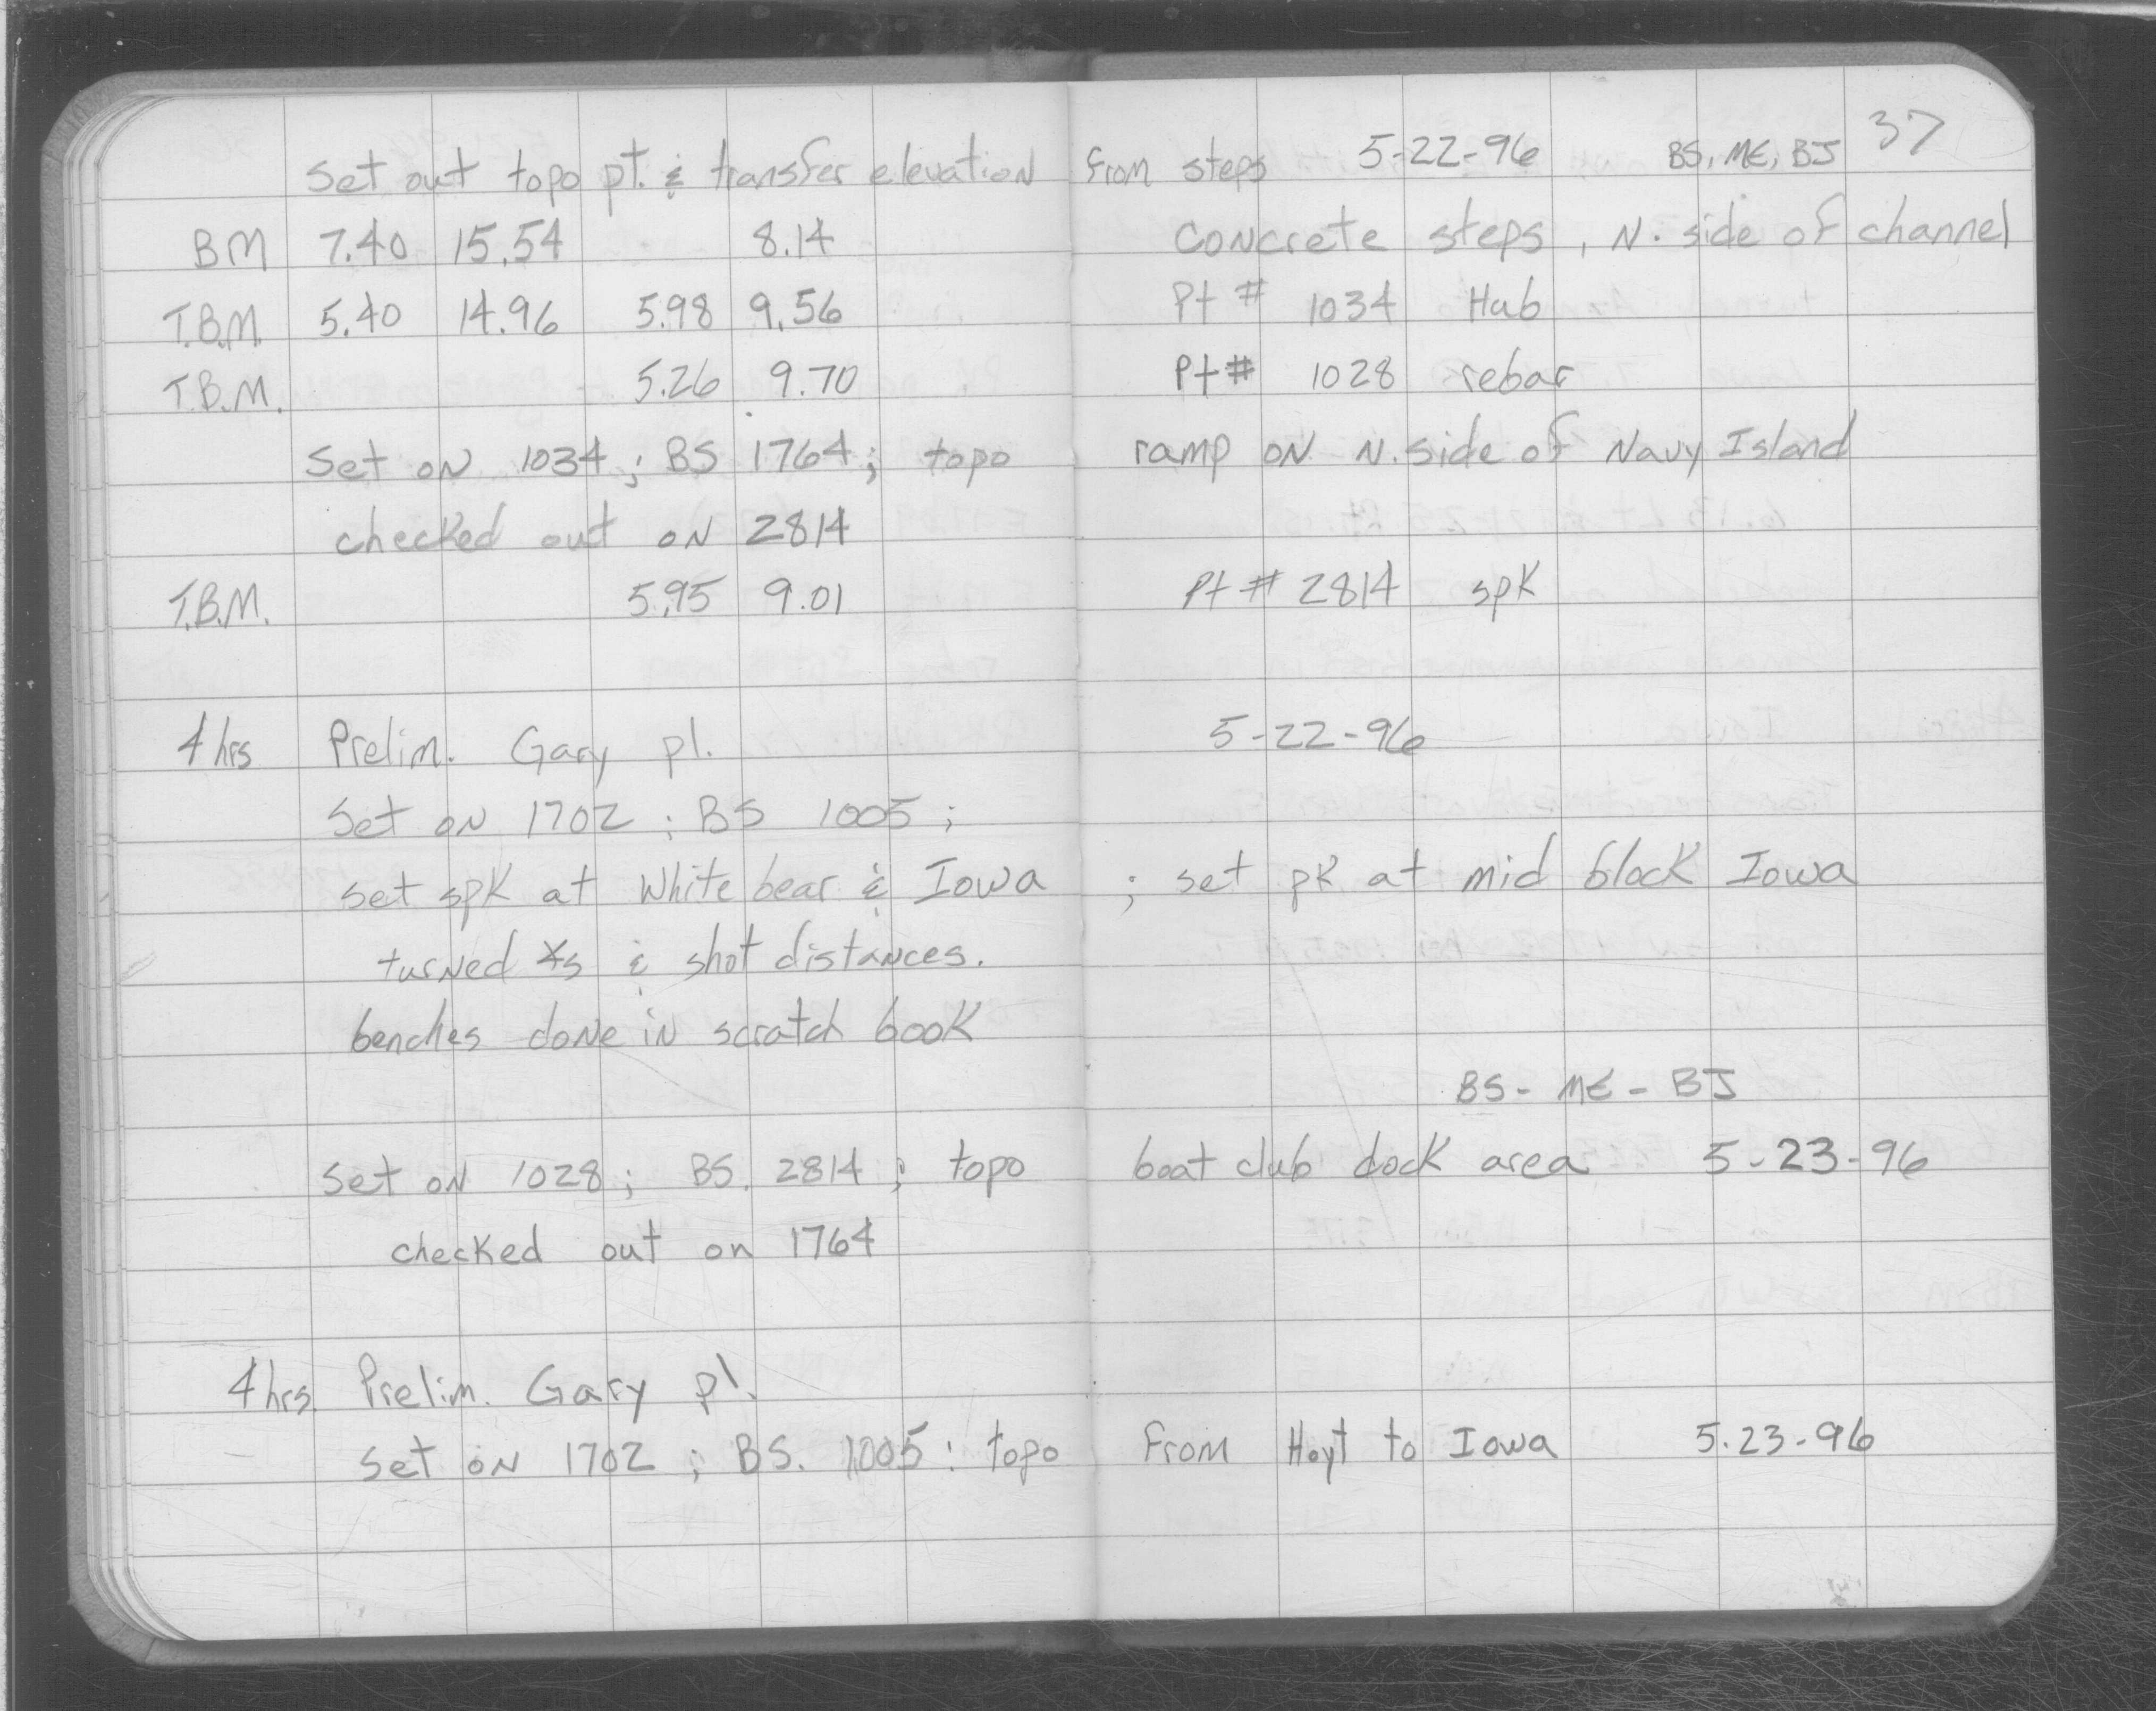 37
Set out topo pt. & transfer elevation From steps 5-22-96 BS, ME, BJ
BM 7.40 15.54 8.14 Concrete steps, N. side of channel
T.B.M. 5.40 14.96 5.98 9.56 Pt # 1034 Hub
T.B.M. 5.26 9.70 Pt # 1028 rebar
Set on 1034; BS 1764; topo ramp on N. side of Navy Island
checked out on 2814
T.B.M. 5.95 9.01 Pt # 2814 spk
4 hrs Prelim. Gary pl. 5-22-96
Set on 1702; BS 1005;
set spk at White bear & Iowa ; set pk at mid block Iowa
turned ∡s & shot distances.
benches done in scratch book
BS - ME - BJ
Set on 1028; BS. 2814; topo boat club dock area 5-23-96
checked out on 1764
4 hrs. Prelim. Gary pl.
Set on 1702; BS. 1005: topo From Hoyt to Iowa 5.23-96